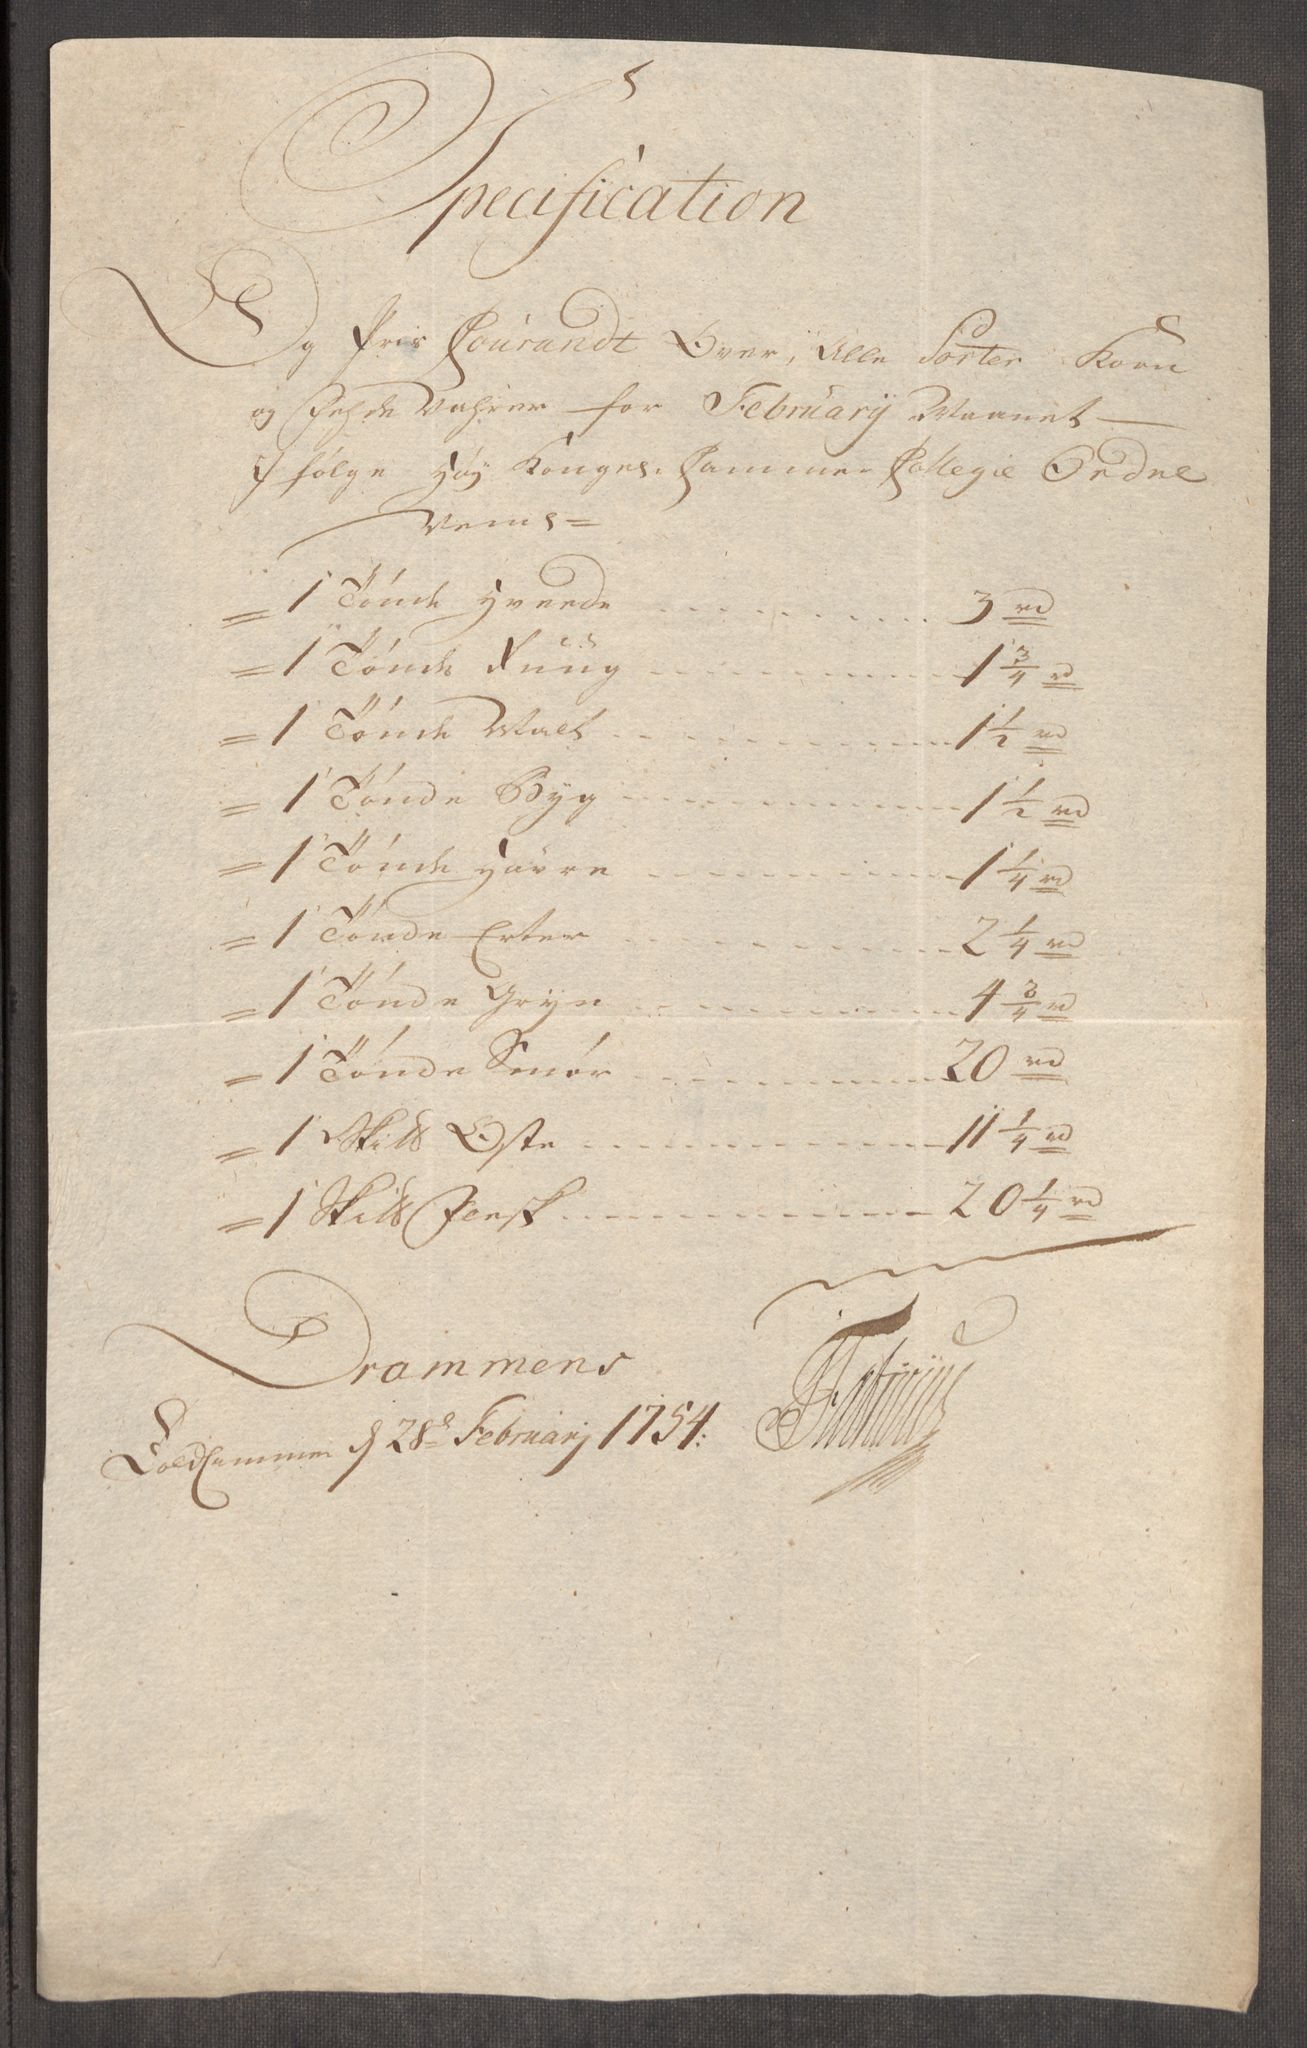 Specification
Og Pris Courandt Over, Alle Sorter Korn
og Fehde Vahrer for February Maanet
I følge høy Konges. Cammer Collegie Ordre
Nemt=
= 1 Tønde Hveede 3 rd
= 1 Tønde Rüüg 1 3/4 rd
= 1 Tønde Malt 1 1/2 rd
= 1 Tønde Byg 1 1/2 rd
= 1 Tønde Havre 1 1/4 rd
= 1 Tønde Erter 2 1/4 rd
= 1 Tønde Gryn 4 3/4 rd
= 1 Tønde Smør 20 rd
= 1 Skib Oste 11 1/4 rd
= 1 Skib Fersk 20 1/4 rd
Drammens
Toldkammer d 28d February 1754.